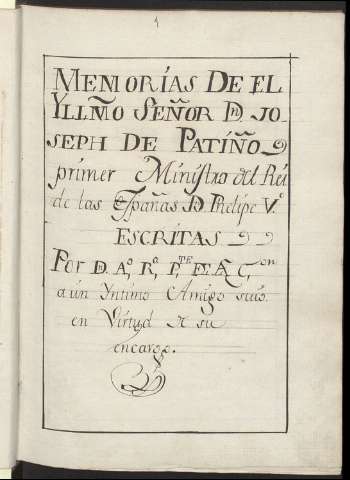 1
MEMORÍAS DE EL
YLLM̃O SEÑOR Dⁿ. JO-
SEPH DE PATIÑO
primer Ministro del Rei
de las Españas D. Phelipe V.º
ESCRITAS
POR D. A.º R.ª
a un Yntimo Amigo suio
en Virtud de su
encargo.